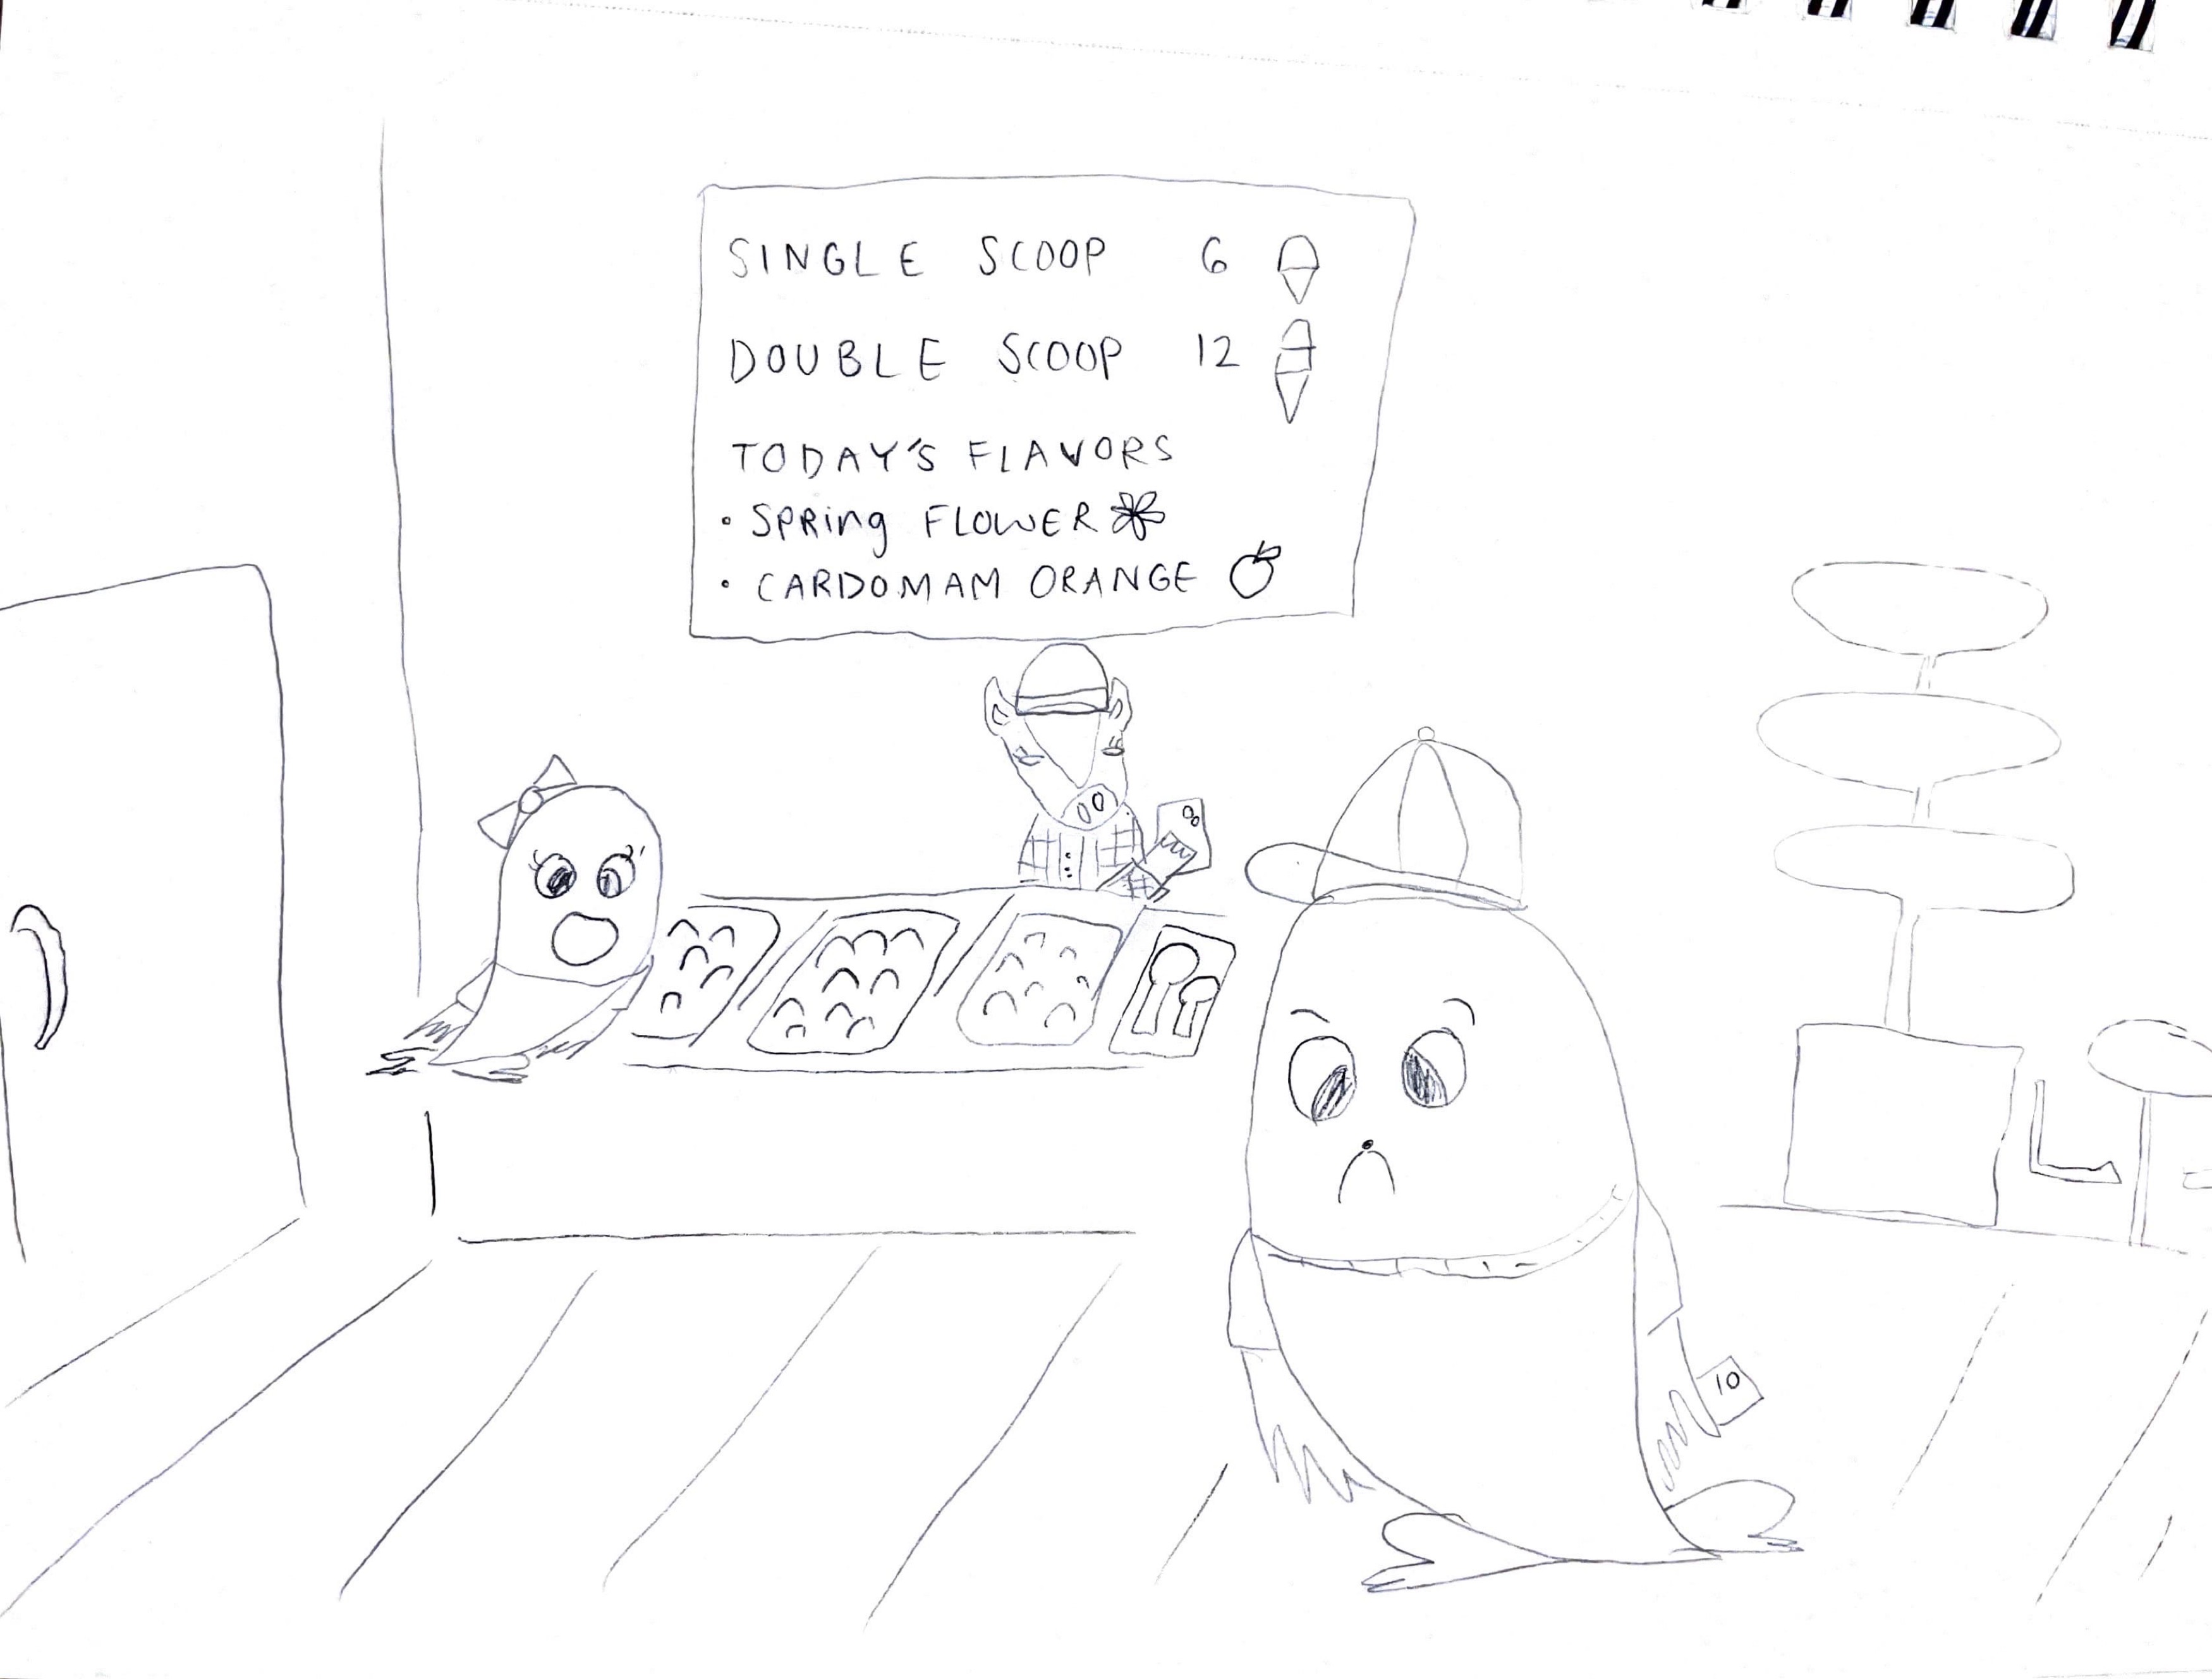 SINGLE SCOOP 6
DOUBLE SCOOP 12
TODAY'S FLAVORS
• SPRing FLOWER
• CARDOMAM ORANGE
10